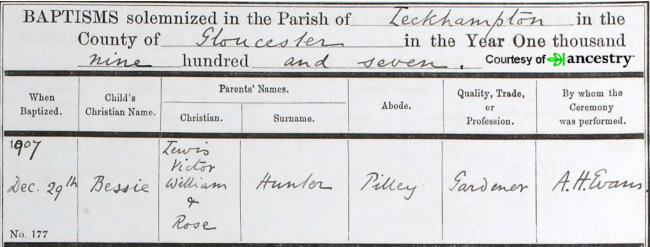 BAPTISMS solemnized in the Parish of Leckhampton in the
County of Gloucester in the Year One thousand
nine hundred and seven.
Courtesy of ancestry
When Baptized.
Child's Christian Name.
Parents' Names.
Christian.
Surname.
Abode.
Quality, Trade, or Profession.
By whom the Ceremony was performed.
1907
Dec. 29th
No. 177
Bessie
Lewis
Victor
William
&
Rose
Hunter
Pilley
Gardener
A.H. Evans.